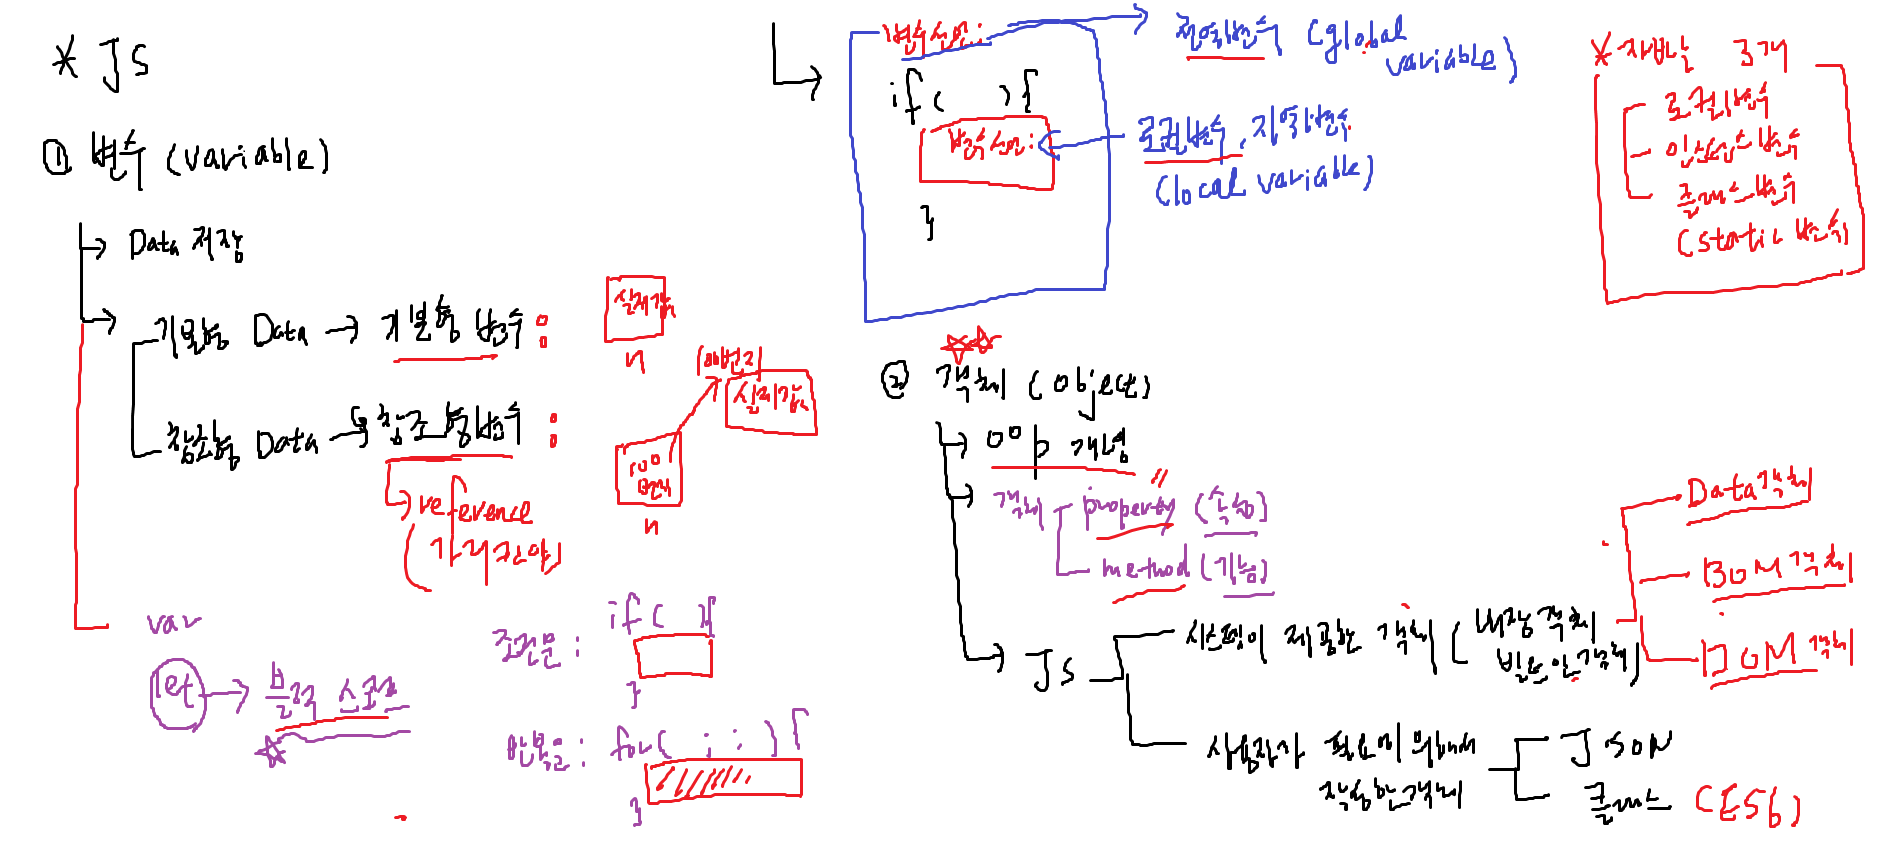 * JS
① 변수 (variable)
Data 저장
기본형 Data → 기본형 변수 :
실제값
n
참조형 Data → 참조형변수 :
100번지
실제값
100
번지
n
reference
(가리킨다)
var
let → 블럭 스코프
조건문 : if ( ) {
}
반복문 : for ( ; ; ) {
}
변수선언;
전역변수 (global
variable)
if ( ) {
변수선언;
로컬변수, 지역변수
(local variable)
}
* 자바는 3개
로컬변수
인스턴스변수
클래스변수
(static 변수)
② 객체 (object)
OOP 개념
객체
property (속성)
method (기능)
JS
시스템이 제공한 객체 (내장객체
빌트인객체)
Data객체
BOM객체
DOM객체
사용자가 필요에 의해서
작성한객체
JSON
클래스 (ES6)